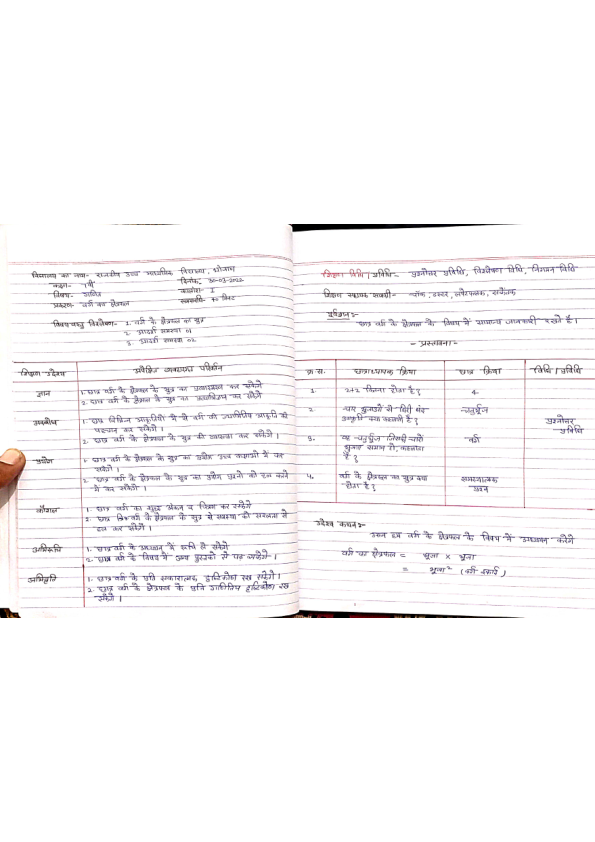 विद्यालय का नाम- राजकीय उच्च माध्यमिक विद्यालय,
कक्षा- 7वीं दिनांक- 30-03-2022
विषय- गणित कालांश- I
प्रकरण- वर्ग का क्षेत्रफल समयावधि- 40 मिनट
विषय वस्तु विश्लेषण- 1. वर्ग के क्षेत्रफल का सूत्र
2. आदर्श समस्या 01
3. आदर्श समस्या 02
शिक्षण उद्देश्य अपेक्षित व्यवहारगत परिवर्तन
ज्ञान 1. छात्र वर्ग के क्षेत्रफल के सूत्र का प्रत्यास्मरण कर सकेंगे
2. छात्र वर्ग के क्षेत्रफल के सूत्र का प्रत्यभिज्ञान कर सकेंगे
अवबोध 1. छात्र विभिन्न आकृतियों में से वर्ग की ज्यामितीय आकृति की
पहचान कर सकेंगे।
2. छात्र वर्ग के क्षेत्रफल के सूत्र की व्याख्या कर सकेंगे।
प्रयोग 1. छात्र वर्ग के क्षेत्रफल के सूत्र का प्रयोग उच्च कक्षाओं में कर
सकेंगे।
2. छात्र वर्ग के क्षेत्रफल के सूत्र का प्रयोग प्रश्नों को हल करने
में कर सकेंगे।
कौशल 1. छात्र वर्ग का शुद्ध अंकन व चित्रण कर सकेंगे
2. छात्र वर्ग के क्षेत्रफल के सूत्र से समस्या को सरलता से
हल कर सकेंगे।
अभिरूचि 1. छात्र वर्ग के अध्ययन में रूचि ले सकेंगे
2. छात्र वर्ग के विषय में अन्य पुस्तकों से पढ़ सकेंगे।
अभिवृत्ति 1. छात्र वर्ग के प्रति सकारात्मक दृष्टिकोण रख सकेंगे।
2. छात्र वर्ग के क्षेत्रफल के प्रति दृष्टिकोण रख
सकेंगे।
शिक्षण विधि/प्रविधि- प्रश्नोत्तर प्रविधि, विश्लेषण विधि, निगमन विधि
शिक्षण सहायक सामग्री- चॉक, डस्टर, लपेटफलक, संकेतक
पूर्वज्ञान:-
छात्र वर्ग के क्षेत्रफल के विषय में सामान्य जानकारी रखते है।
- प्रस्तावना -
क्र.स. छात्राध्यापक क्रिया छात्र क्रिया विधि/प्रविधि
1. 2+2 कितना होता है? 4
2. चार भुजाओं से घिरी बंद चतुर्भुज
आकृति क्या कहलाती है? प्रश्नोत्तर
प्रविधि
3. वह चतुर्भुज जिसकी चारों वर्ग
भुजाएं समान हो, कहलाता
है?
4. वर्ग के क्षेत्रफल का सूत्र क्या समस्यात्मक
होता है? प्रश्न
उद्देश्य कथन:-
आज हम वर्ग के क्षेत्रफल के विषय में अध्ययन करेंगे
वर्ग का क्षेत्रफल = भुजा × भुजा
= भुजा² (वर्ग इकाई)